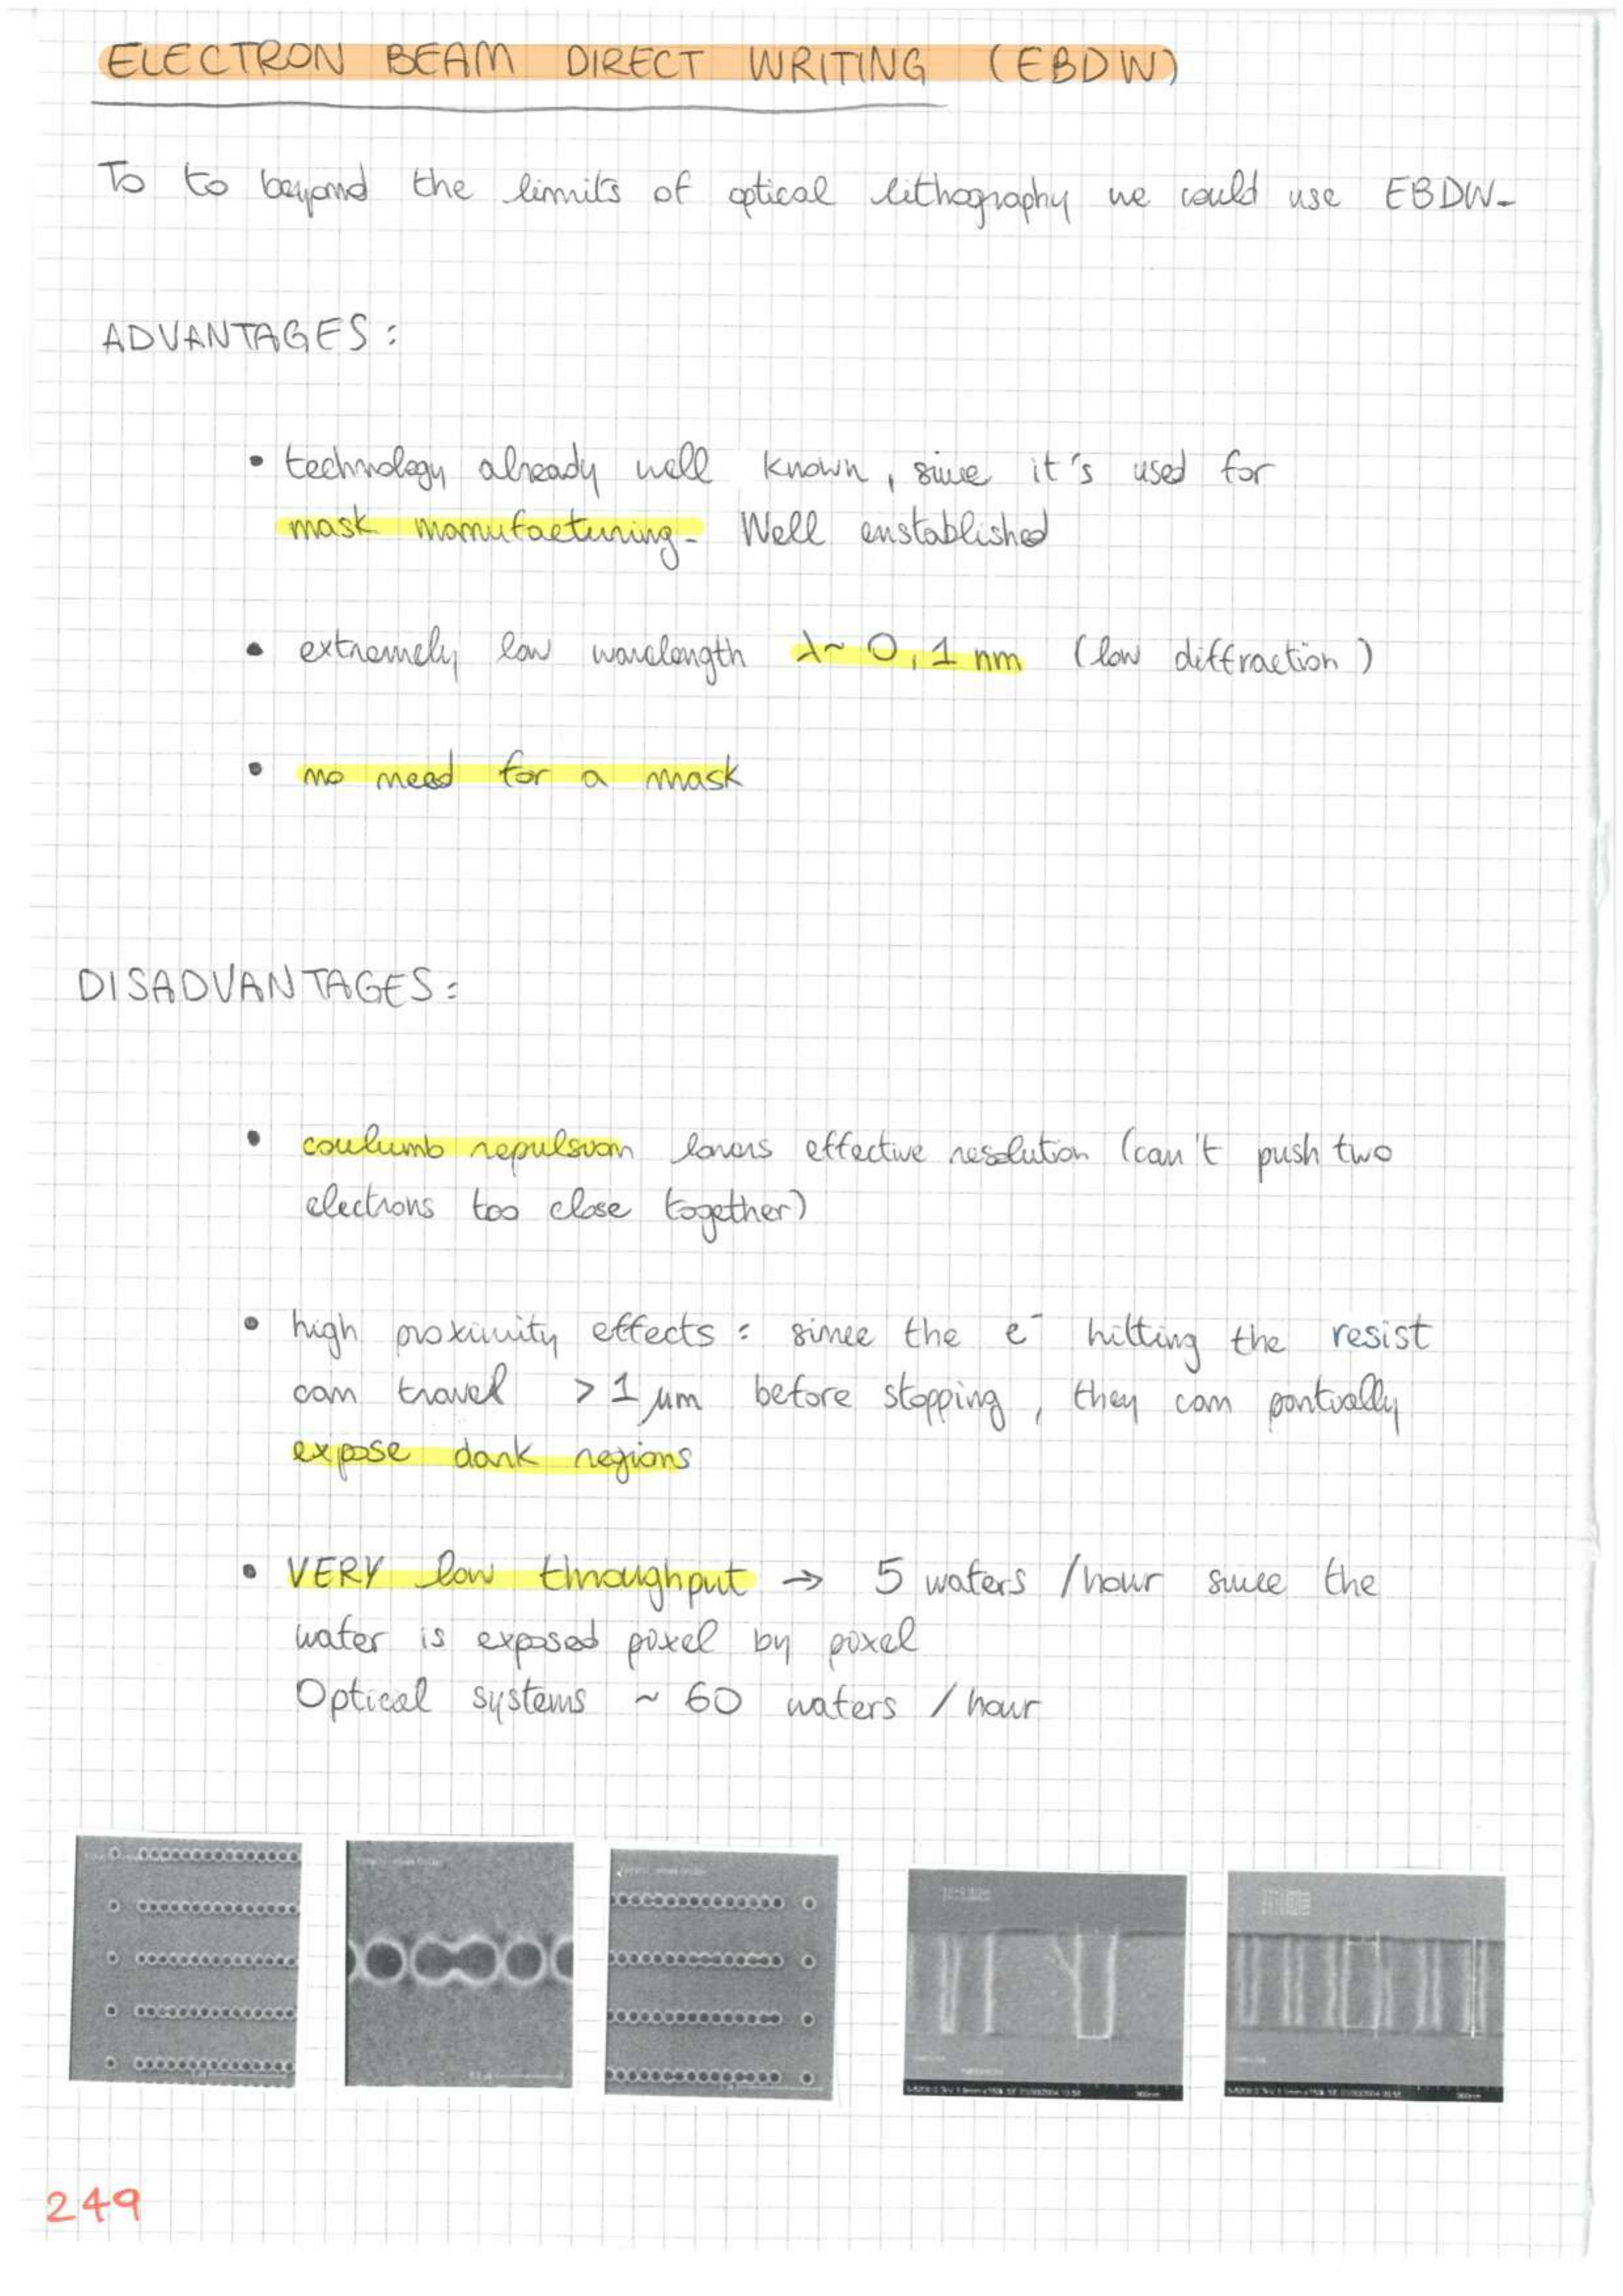 ELECTRON BEAM DIRECT WRITING (EBDW)
To to beyond the limits of optical lithography we could use EBDW.
ADVANTAGES:
• technology already well known, since it's used for
mask manufacturing. Well enstablished
• extremely low wavelength λ~ 0,1 nm (low diffraction)
• no need for a mask
DISADVANTAGES:
• coulumb repulsion lowers effective resolution (can't push two
electrons too close together)
• high proximity effects: since the e⁻ hitting the resist
can travel > 1 μm before stopping, they can partially
expose dark regions
• VERY low throughput → 5 wafers /hour since the
wafer is exposed pixel by pixel
Optical systems ~ 60 wafers / hour
249